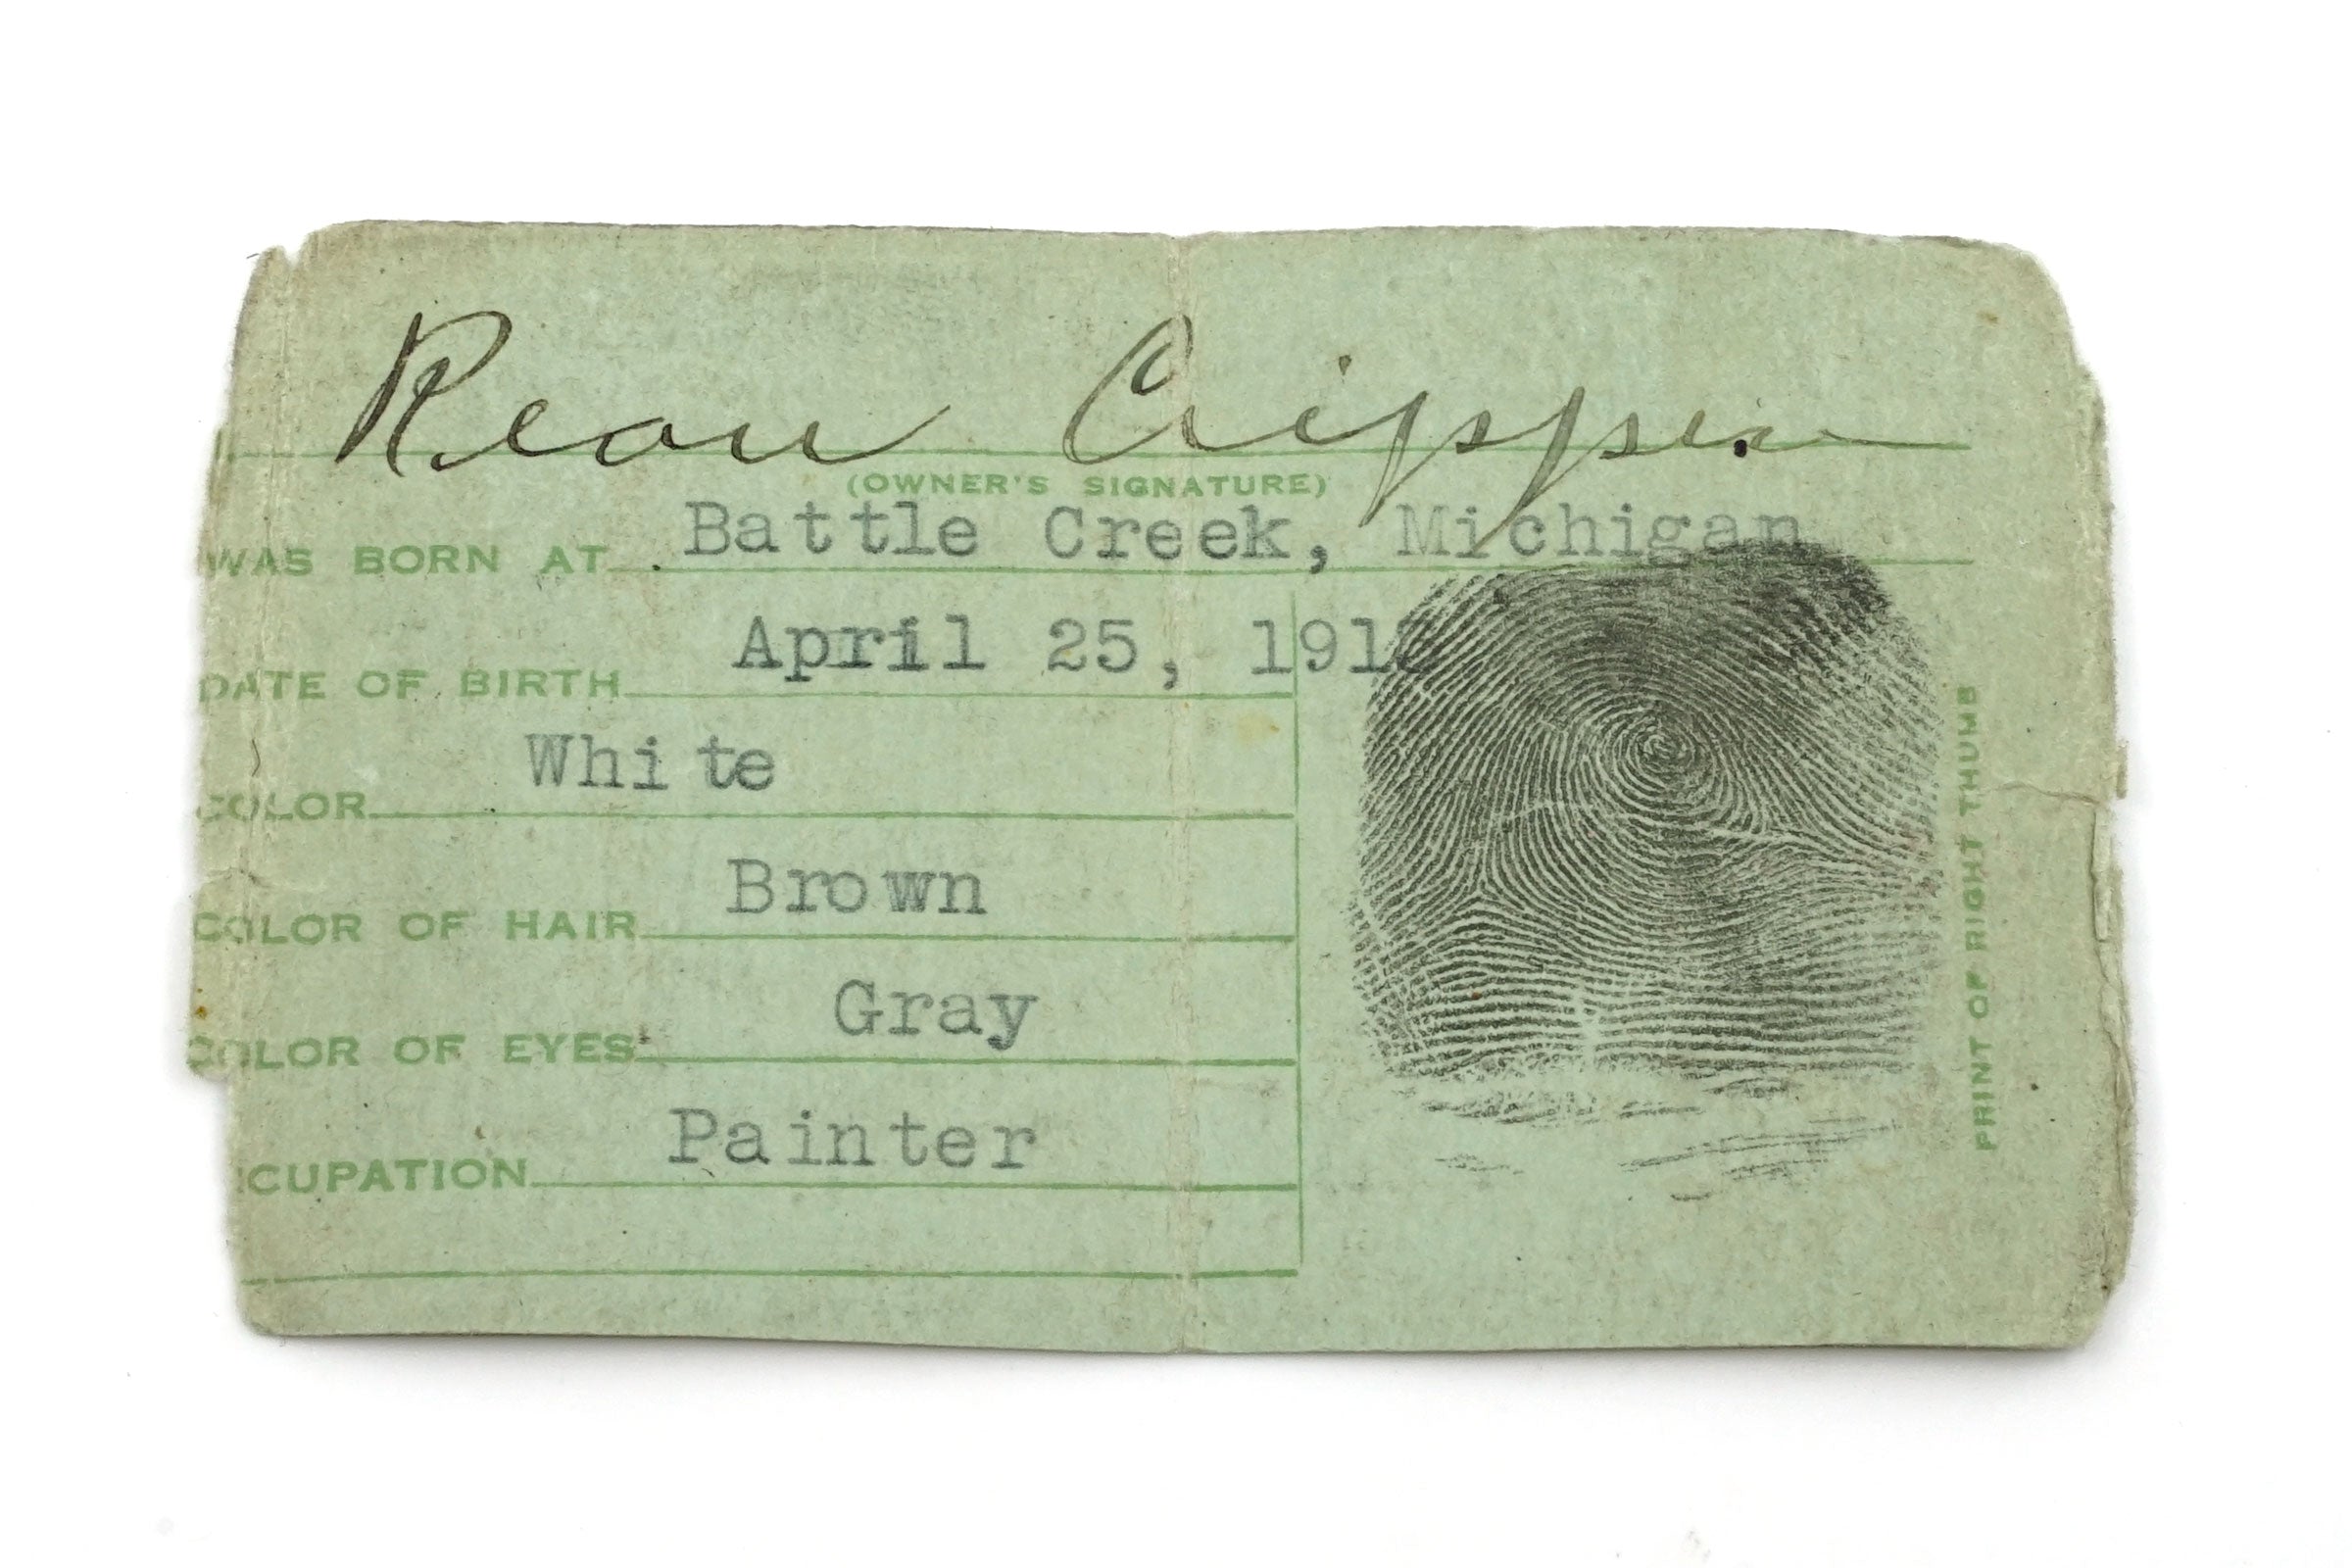 Reon Crippen
(OWNER'S SIGNATURE)
WAS BORN AT Battle Creek, Michigan
DATE OF BIRTH April 25,
COLOR White
COLOR OF HAIR Brown
COLOR OF EYES Gray
CUPATION Painter
PRINT OF RIGHT THUMB